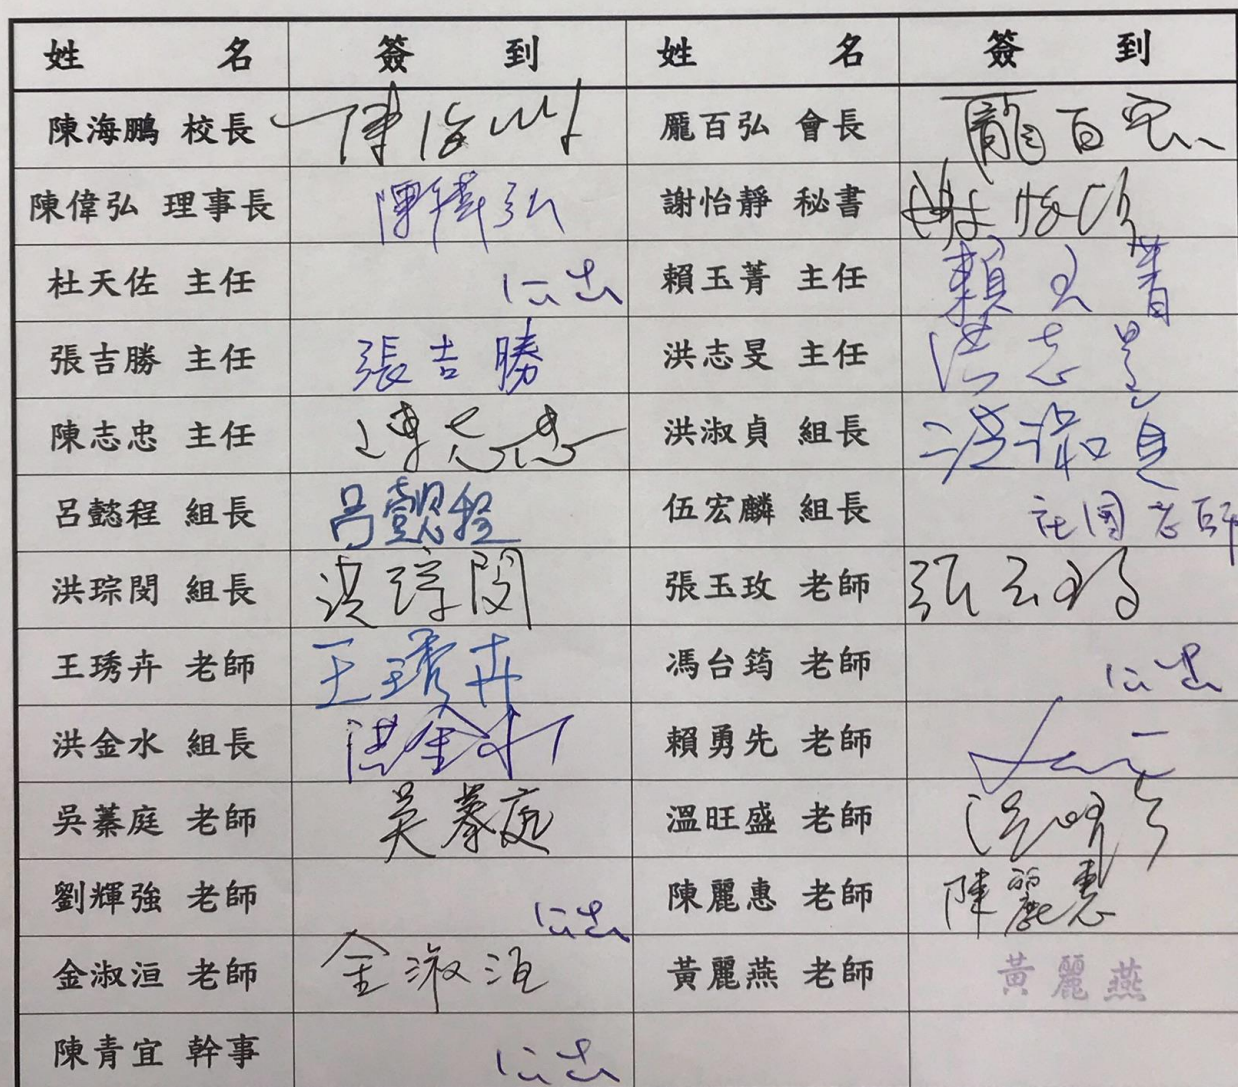 姓名 簽到 姓名 簽到
陳海鵬 校長 陳海 龎百弘 會長 龎百弘
陳偉弘 理事長 陳偉弘 謝怡靜 秘書 謝怡靜
杜天佐 主任 公出 賴玉菁 主任 賴玉菁
張吉勝 主任 張吉勝 洪志旻 主任 洪志旻
陳志忠 主任 陳志忠 洪淑貞 組長 洪淑貞
呂懿程 組長 呂懿程 伍宏麟 組長 社團老師
洪琮閔 組長 洪琮閔 張玉玫 老師 張玉玫
王琇卉 老師 王琇卉 馮台筠 老師 公出
洪金水 組長 洪金水 賴勇先 老師
吳蓁庭 老師 吳蓁庭 溫旺盛 老師
劉輝強 老師 公出 陳麗惠 老師 陳麗惠
金淑洹 老師 金淑洹 黃麗燕 老師 黃麗燕
陳青宜 幹事 公出